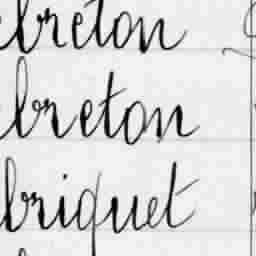 breton
breton
briquet